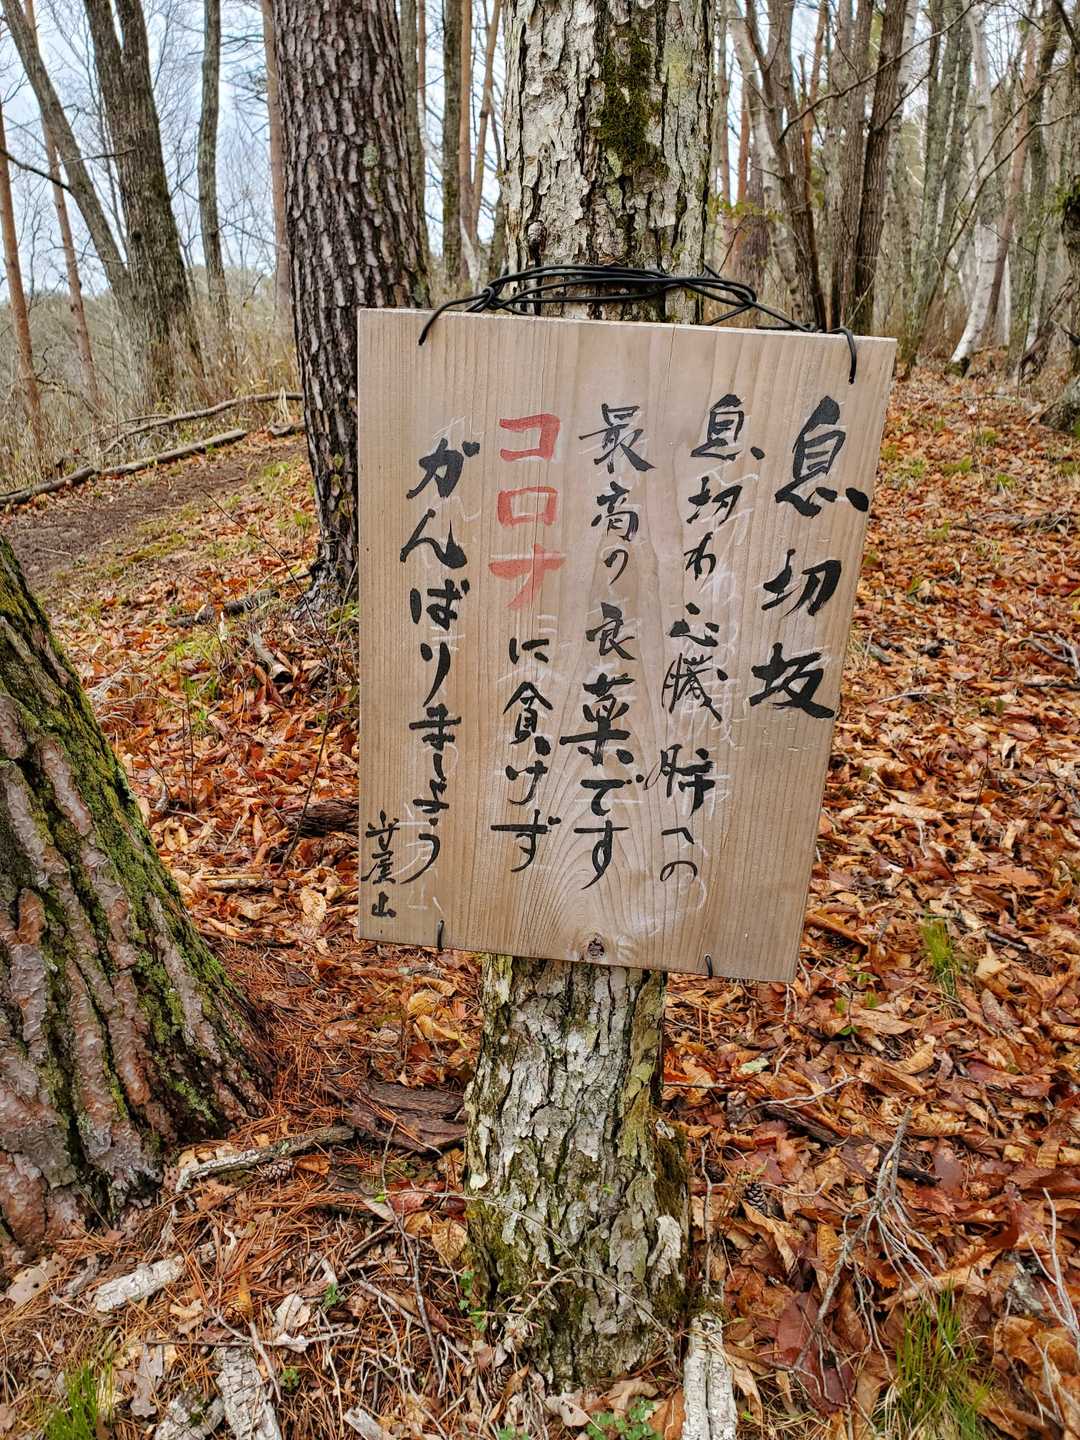 息切坂
息切れ心臓肺への
最高の良薬です
コロナに負けず
がんばりましょう
守屋山